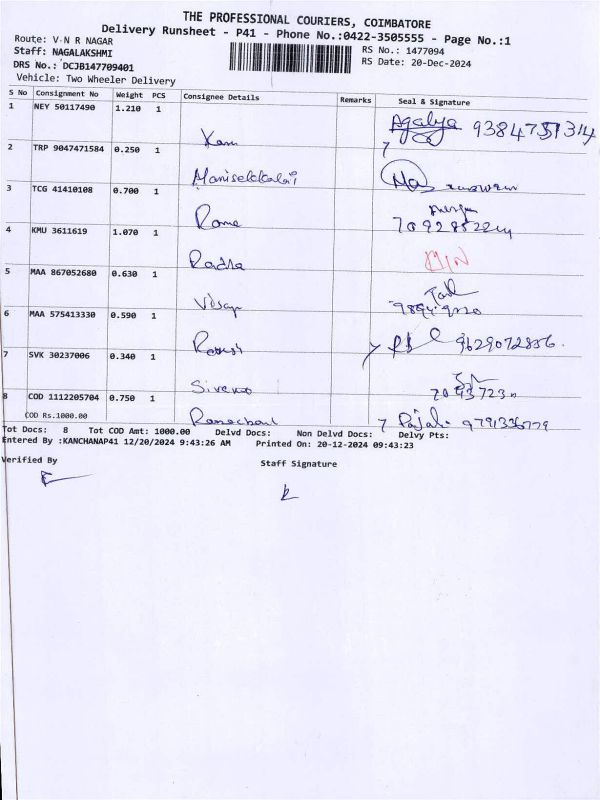 THE PROFESSIONAL COURIERS, COIMBATORE
Delivery Runsheet - P41 - Phone No.:0422-3505555 - Page No.:1
Route: V N R NAGAR
Staff: NAGALAKSHMI
RS No.: 1477094
DRS No.: DCJB147709401
RS Date: 20-Dec-2024
Vehicle: Two Wheeler Delivery
S No Consignment No Weight PCS Consignee Details Remarks Seal & Signature
1 NEY 50117490 1.210 1
Agalya 9384751314
2 TRP 9047471584 0.250 1
3 TCG 41410108 0.700 1
Rama
4 KMU 3611619 1.070 1
Radha
5 MAA 867052680 0.630 1
6 MAA 575413330 0.590 1
9629072856.
7 SVK 30237006 0.340 1
8 COD 1112205704 0.750 1
COD Rs.1000.00
9791336779
Tot Docs: 8 Tot COD Amt: 1000.00 Delvd Docs: Non Delvd Docs: Delvy Pts:
Entered By :KANCHANAP41 12/20/2024 9:43:26 AM Printed On: 20-12-2024 09:43:23
Verified By
Staff Signature